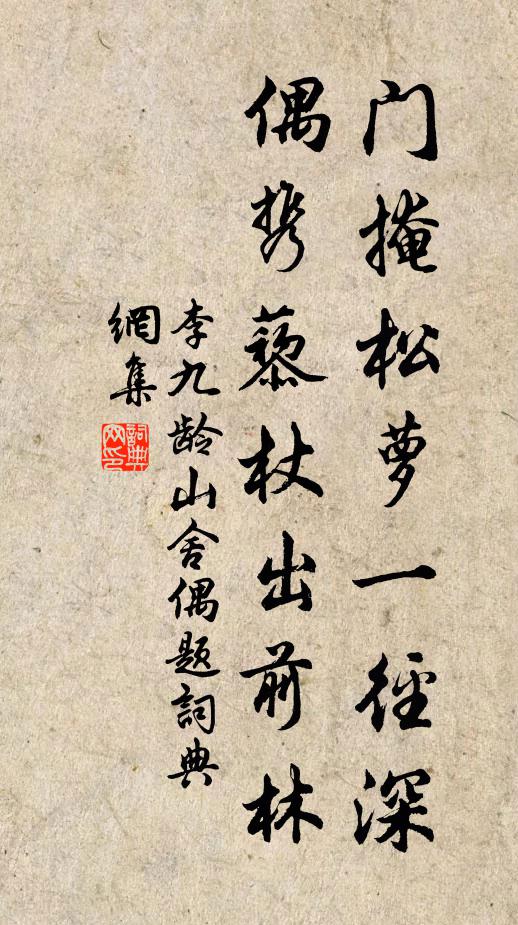 门掩松萝一径深
偶携藜杖出前林
李九龄山舍偶题詞典
網集
詞典
网印